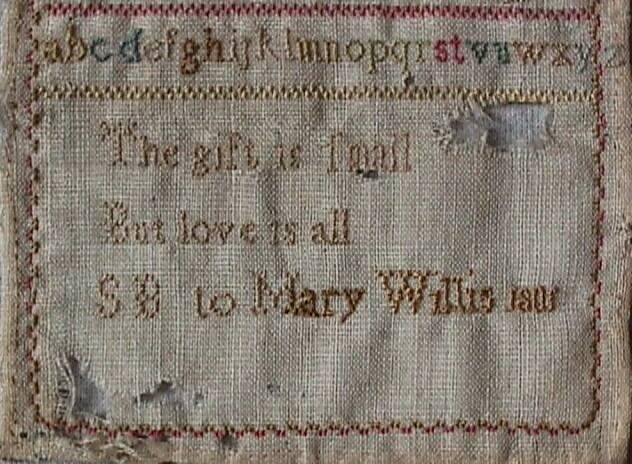 abcdefghijklmnopqrstvuwxyz
The gift is ſmall
But love is all
S B to Mary Willis